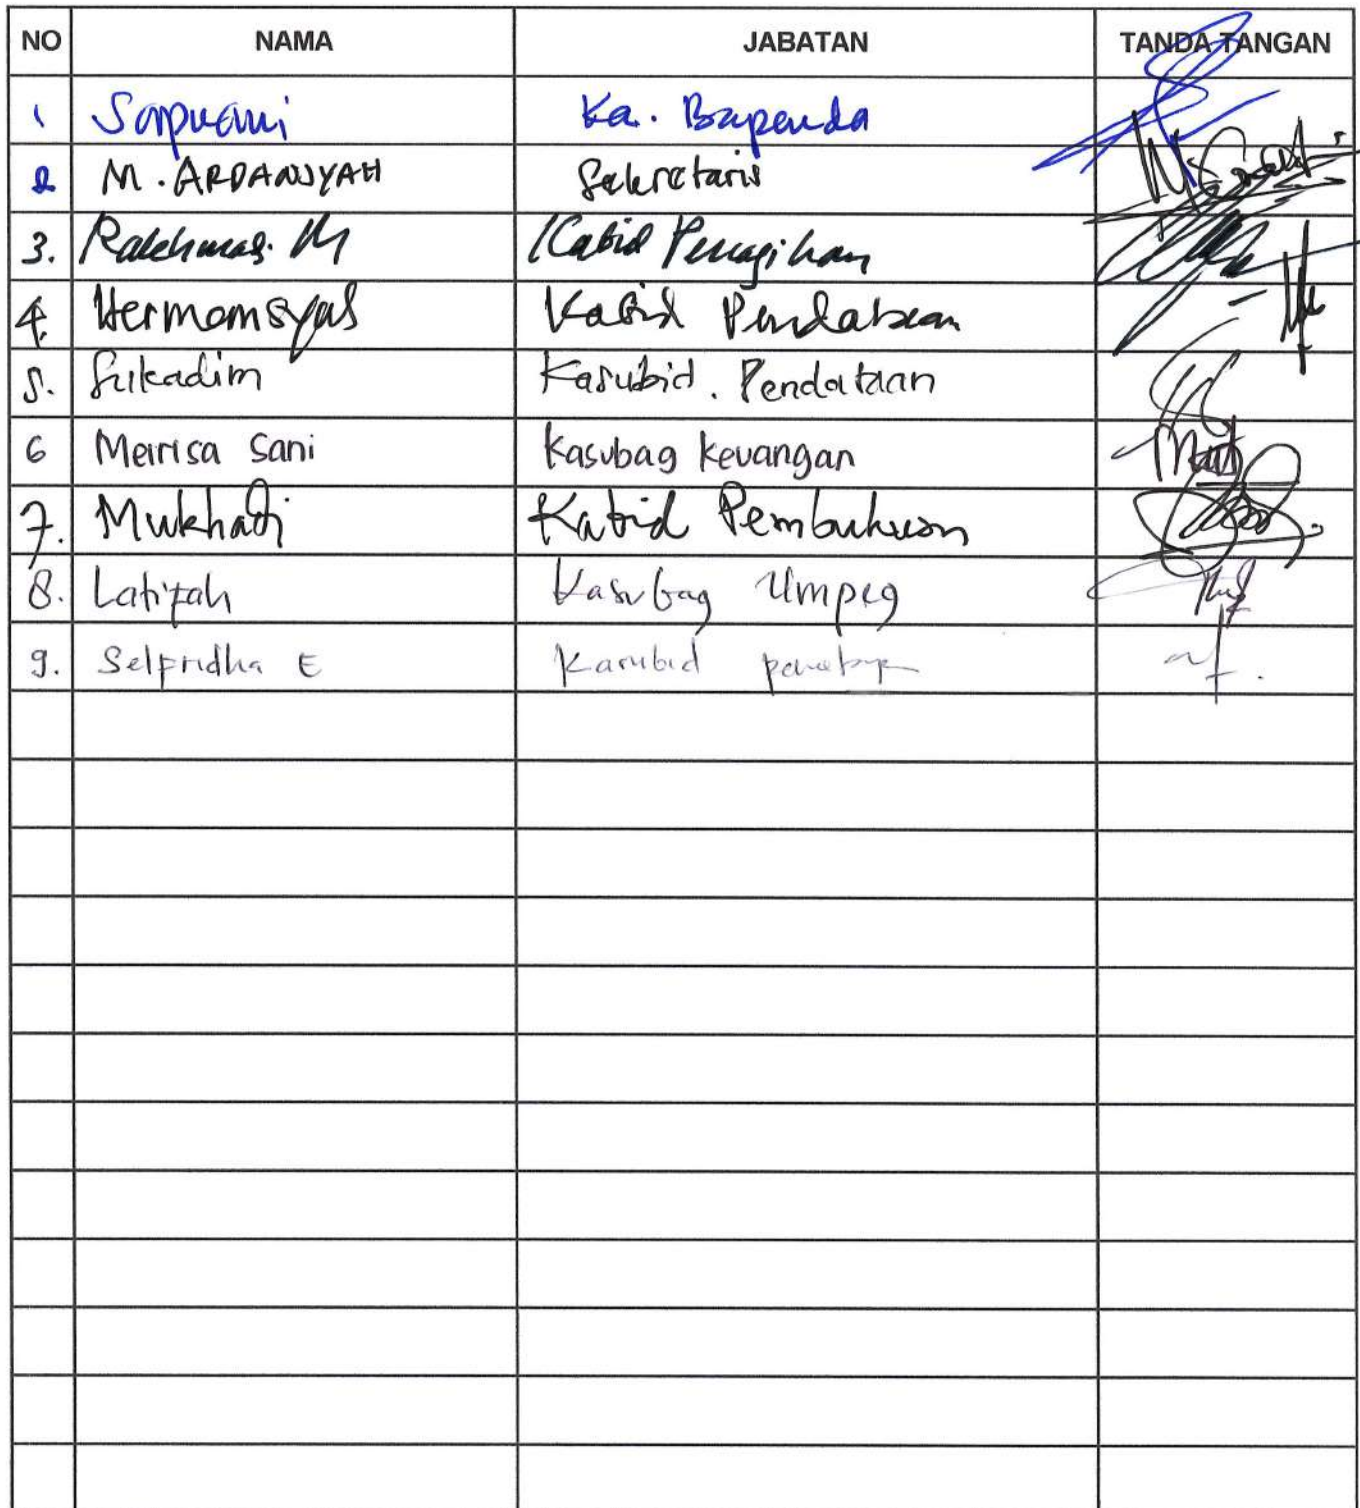 NO NAMA JABATAN TANDA TANGAN
1 Sapuani Ka. Bapenda
2 M. ARDANSYAH Sekretaris
3. Rakhmad. M Kabid Penagihan
4. Hermansyah Kabid Pendataan
5. Sukadim Kasubid. Pendataan
6 Meirisa Sani Kasubag Keuangan
7. Mukhadi Kabid Pembukuan
8. Latifah Kasubag Umpeg
9. Selfridha E Kasubid